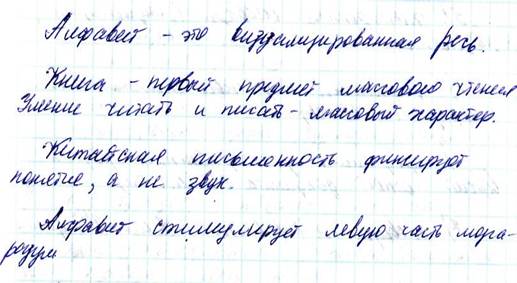 Алфавит - это визуализированная речь.
Книга - первый предмет массового чтения
Умение читать и писать - массовый характер.
Китайская письменность фиксирует
понятие, а не звук.
Алфавит стимулирует левую часть мозга-
разум